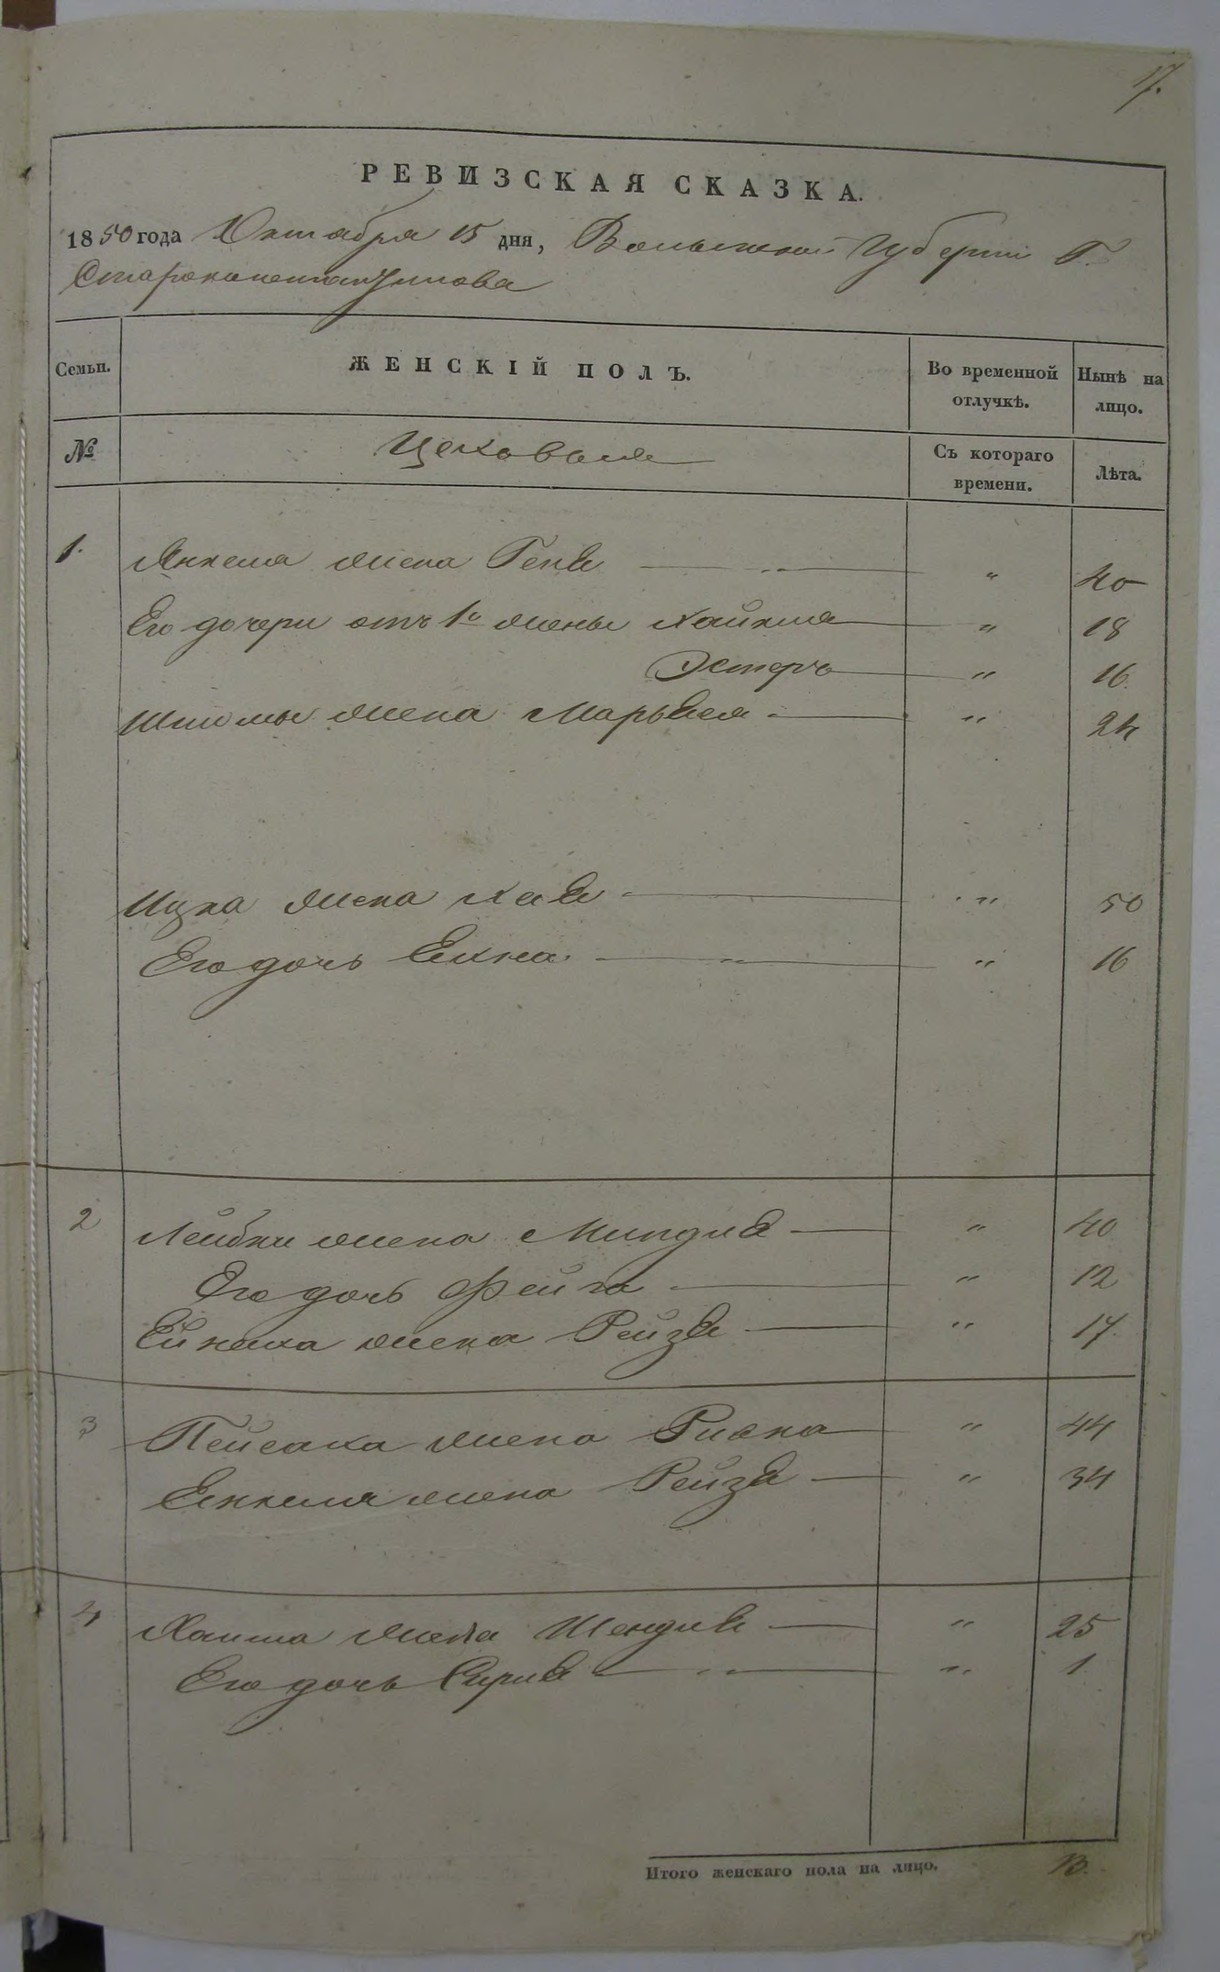 17.
РЕВИЗСКАЯ СКАЗКА.
1850 года Октября 15 дня, Волынской Губернии Г.
Староконстантинова
Семьи. ЖЕНСКІЙ ПОЛЪ. Во временной отлучкѣ. Нынѣ на лицо.
№ Цеховые Съ котораго времени. Лѣта.
1. Янкеля жена Геня " 40
Его дочери отъ 1й жены Хайкля " 18
Эстеръ " 16
Шлиомы жена Марьяся " 24
Ицка жена Хая " 50
Его дочь " 16
2 Лейбки жена Миндля " 40
Его дочь Фейга " 12
жена Рейзя " 17.
3 Пейсаха жена Ривка " 44
Янкеля жена Рейзя " 34
4 Хаима жена Шендля " 25
Его дочь Сурля " 1
Итого женскаго пола на лицо. 13.